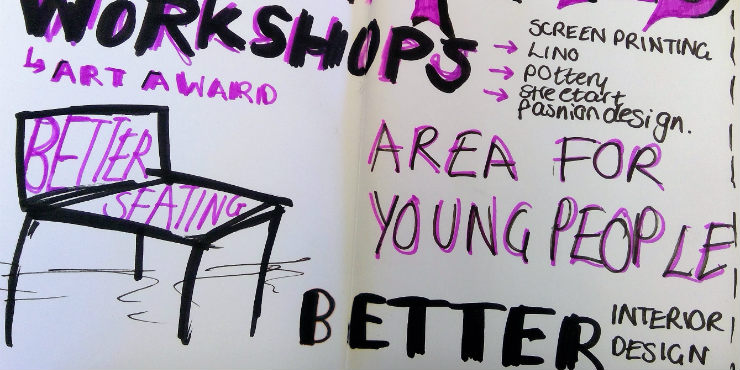 WORKSHOPS
ART AWARD
SCREEN PRINTING
LINO
pottery
streetart
fashion design.
BETTER
SEATING
AREA FOR
YOUNG PEOPLE
BETTER
INTERIOR
DESIGN